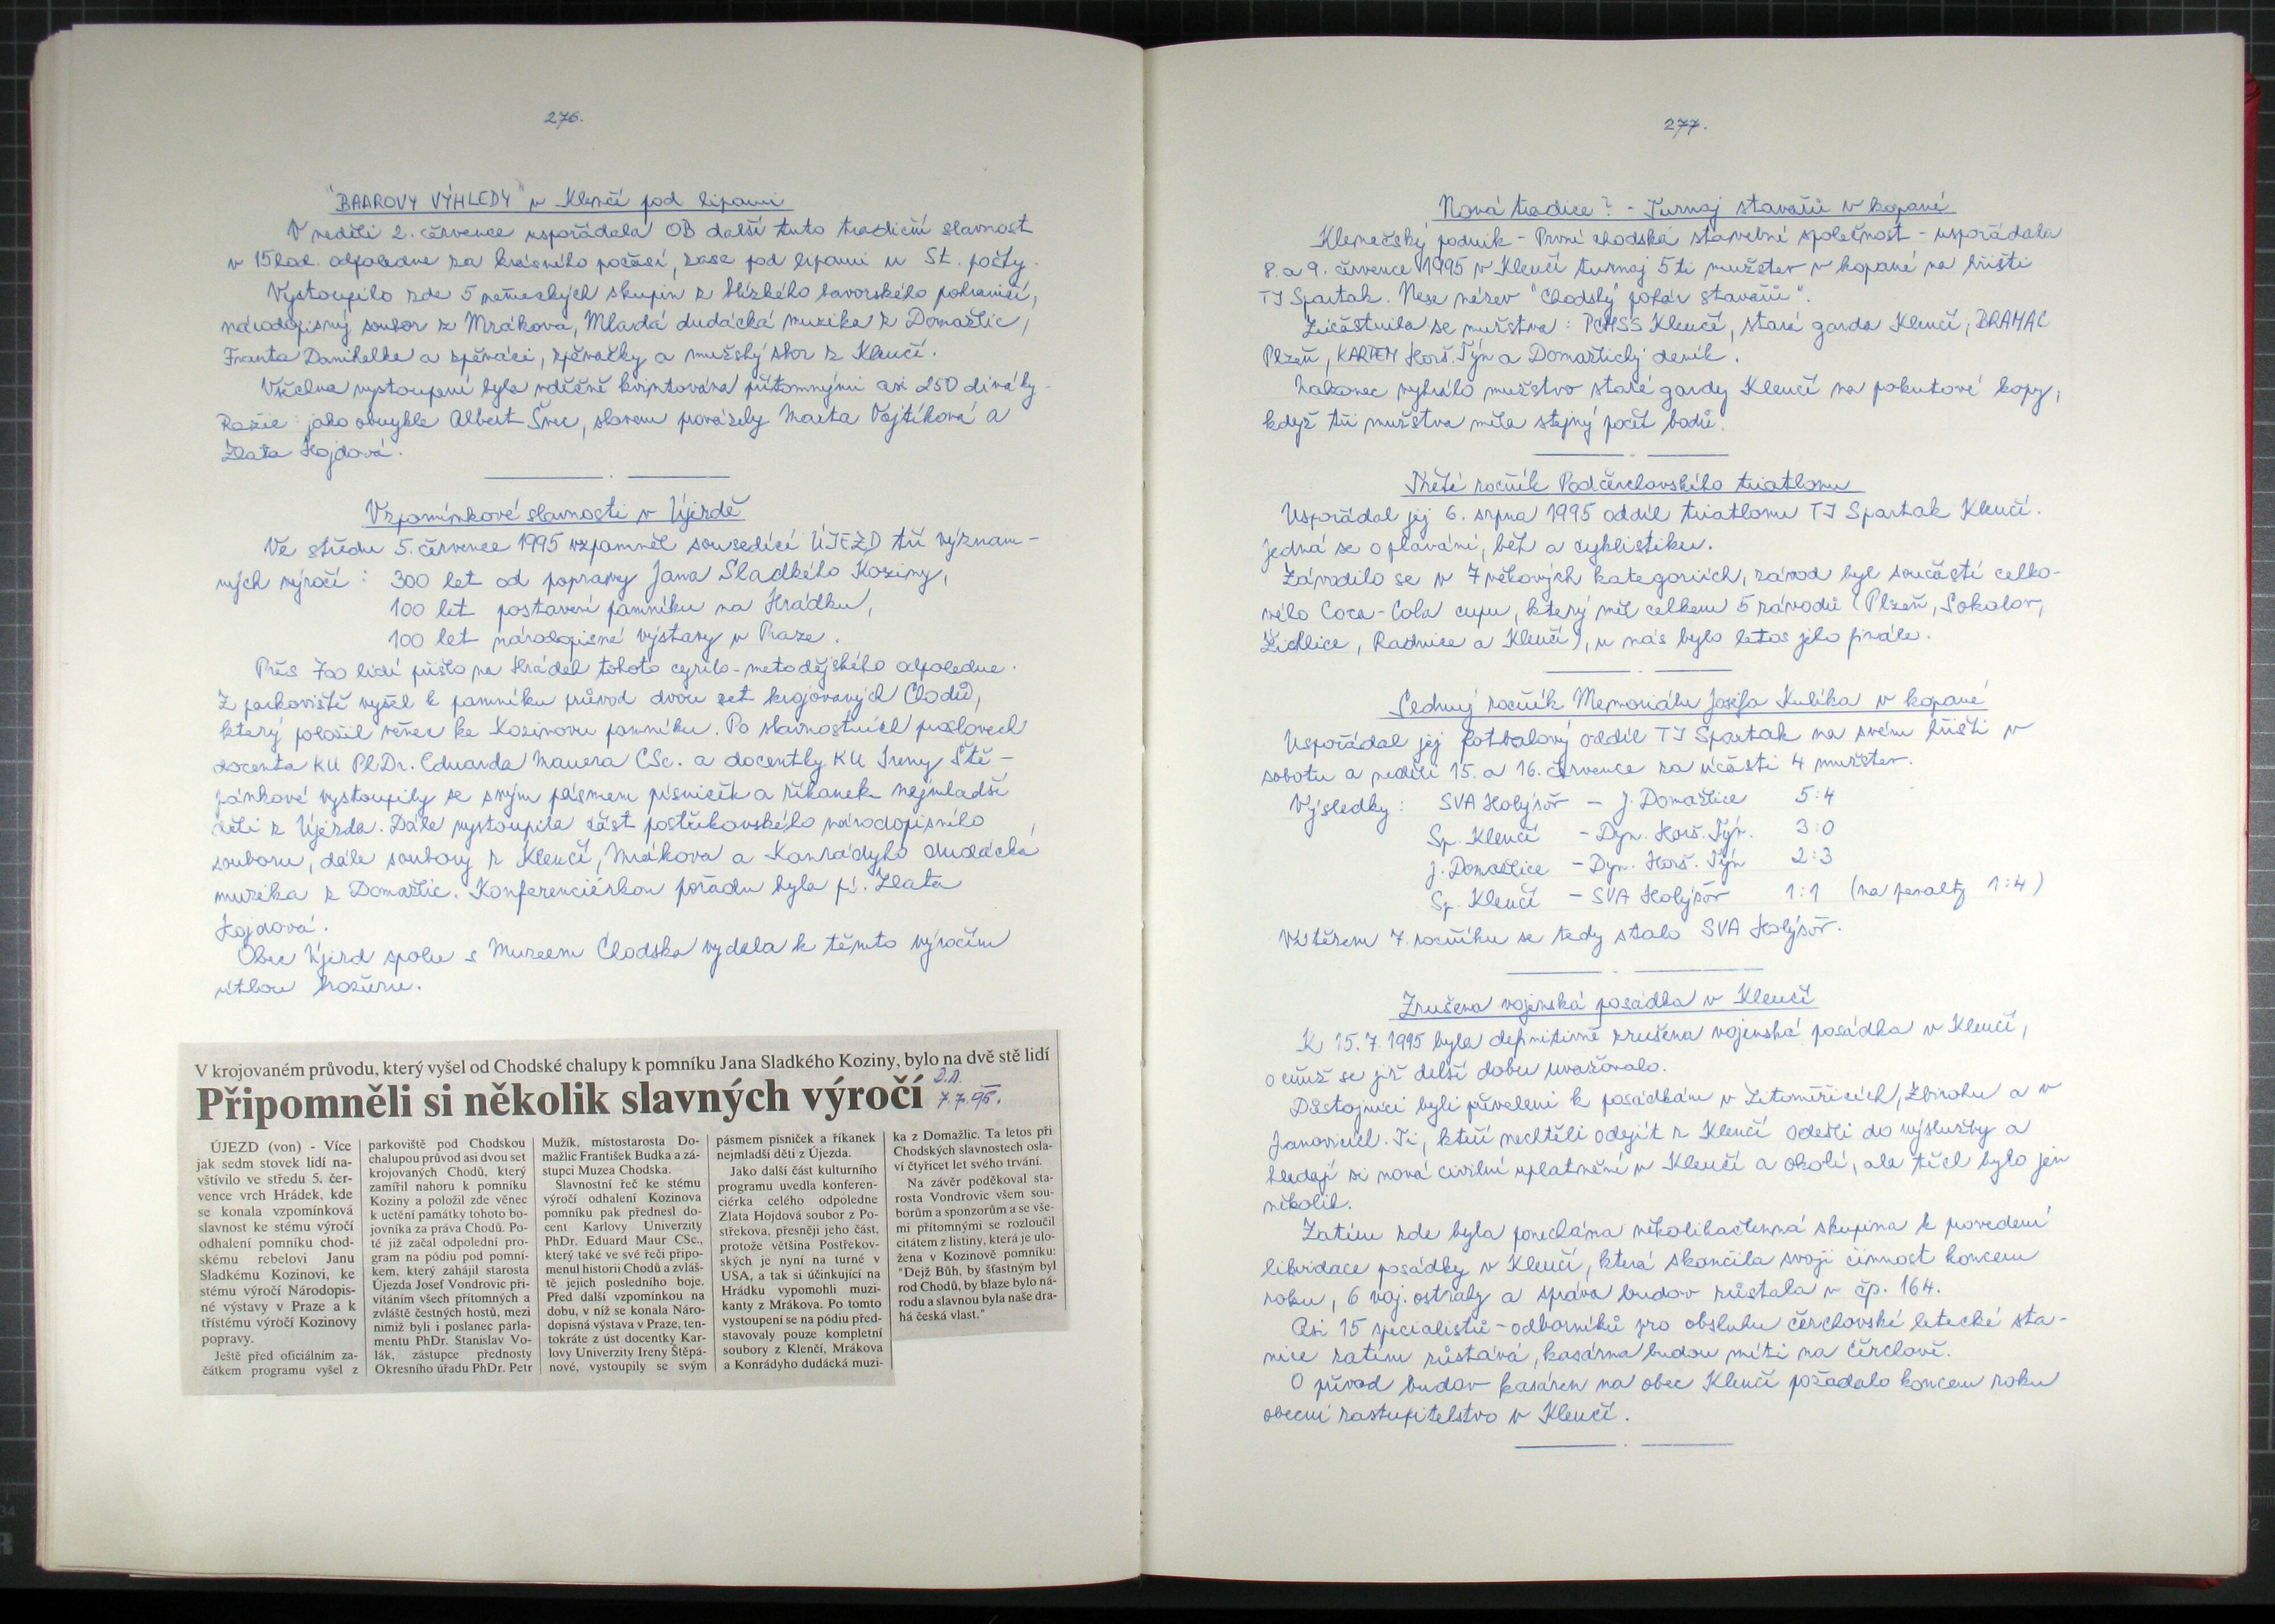 276.
"BAAROVY VÝHLEDY" v Klenčí pod lipami
V neděli 2. července uspořádala OB další tuto tradiční slavnost
v 15 hod. odpoledne za krásného počasí, zase pod lipami u St. pošty.
Vystoupilo zde 5 německých skupin z blízkého bavorského pohraničí,
národopisný soubor z Mrákova, Mladá dudácká muzika z Domažlic,
Franta Damihelka a zpěváci, zpěvačky a mužský sbor z Klenčí.
Všechna vystoupení byla vděčně kvintována přítomnými asi 250 diváky.
Režie jako obvykle Albert Švec, slovem provázely Marta Vojtíková a
Zlata Hojdová.
Vzpomínkové slavnosti v Újezdě
Ve středu 5. července 1995 vzpomněl sousedící ÚJEZD tří význam-
ných výročí : 300 let od popravy Jana Sladkého Koziny,
100 let postavení pomníku na Hrádku,
100 let národopisné výstavy v Praze.
Přes 700 lidí přišlo na Hrádek tohoto cyrilo-metodějského odpoledne.
Z parkoviště vyšel k pomníku průvod dvou set krojovaných Chodů,
který položil věnec ke Kozinovu pomníku. Po slavnostních proslovech
docenta KU PhDr. Eduarda Maura CSc. a docentky KU Ireny Ště-
pánkové vystoupily se svým pásmem písniček a říkanek nejmladší
děti z Újezda. Dále vystoupila část postřekovského národopisného
souboru, dále soubory z Klenčí, Mrákova a Konrádyho dudácká
muzika z Domažlic. Konferenciérkou pořadu byla pí. Zlata
Hojdová.
Obec Újezd spolu s Muzeem Chodska vydala k těmto výročím
útlou brožuru.
V krojovaném průvodu, který vyšel od Chodské chalupy k pomníku Jana Sladkého Koziny, bylo na dvě stě lidí
Připomněli si několik slavných výročí
D.D.
7.7.95.
ÚJEZD (von) - Více
jak sedm stovek lidí na-
vštívilo ve středu 5. čer-
vence vrch Hrádek, kde
se konala vzpomínková
slavnost ke stému výročí
odhalení pomníku chod-
skému rebelovi Janu
Sladkému Kozinovi, ke
stému výročí Národopis-
né výstavy v Praze a k
třístému výročí Kozinovy
popravy.
Ještě před oficiálním za-
čátkem programu vyšel z
parkoviště pod Chodskou
chalupou průvod asi dvou set
krojovaných Chodů, který
zamířil nahoru k pomníku
Koziny a položil zde věnec
k uctění památky tohoto bo-
jovníka za práva Chodů. Po-
té již začal odpolední pro-
gram na pódiu pod pomní-
kem, který zahájil starosta
Újezda Josef Vondrovic při-
vítáním všech přítomných a
zvláště čestných hostů, mezi
nimiž byli i poslanec parla-
mentu PhDr. Stanislav Vo-
lák, zástupce přednosty
Okresního úřadu PhDr. Petr
Mužík, místostarosta Do-
mažlic František Budka a zá-
stupci Muzea Chodska.
Slavnostní řeč ke stému
výročí odhalení Kozinova
pomníku pak přednesl do-
cent Karlovy Univerzity
PhDr. Eduard Maur CSc.,
který také ve své řeči připo-
menul historii Chodů a zvláš-
tě jejich posledního boje.
Před další vzpomínkou na
dobu, v níž se konala Náro-
dopisná výstava v Praze, ten-
tokráte z úst docentky Kar-
lovy Univerzity Ireny Štěpá-
nové, vystoupily se svým
pásmem písniček a říkanek
nejmladší děti z Újezda.
Jako další část kulturního
programu uvedla konferen-
ciérka celého odpoledne
Zlata Hojdová soubor z Po-
střekova, přesněji jeho část,
protože většina Postřekov-
ských je nyní na turné v
USA, a tak si účinkující na
Hrádku vypomohli muzi-
kanty z Mrákova. Po tomto
vystoupení se na pódiu před-
stavovaly pouze kompletní
soubory z Klenčí, Mrákova
a Konrádyho dudácká muzi-
ka z Domažlic. Ta letos při
Chodských slavnostech osla-
ví čtyřicet let svého trvání.
Na závěr poděkoval sta-
rosta Vondrovic všem sou-
borům a sponzorům a se vše-
mi přítomnými se rozloučil
citátem z listiny, která je ulo-
žena v Kozinově pomníku:
"Dejž Bůh, by šťastným byl
rod Chodů, by blaze bylo ná-
rodu a slavnou byla naše dra-
há česká vlast."
277.
Nová tradice? - Turnaj stavařů v kopané
Klenečský podnik - První chodská stavební společnost - uspořádala
8. a 9. července 1995 v Klenčí turnaj 5ti mužstev v kopané na hřišti
TJ Spartak. Nese název "Chodský pohár stavařů".
Zúčastnila se mužstva : PCHSS Klenčí, stará garda Klenčí, BRAMAC
Plzeň, KARTEM Horš. Týn a Domažlický deník.
Nakonec vyhrálo mužstvo staré gardy Klenčí na pokutové kopy,
když tři mužstva měla stejný počet bodů.
Třetí ročník Podčerchovského triatlonu
Uspořádal jej 6. srpna 1995 oddíl triatlonu TJ Spartak Klenčí.
Jedná se o plavání, běh a cyklistiku.
Závodilo se v 7 věkových kategoriích, závod byl součástí celko-
vého Coca-Cola cupu, který měl celkem 5 závodů (Plzeň, Sokolov,
Žichlice, Radnice a Klenčí), u nás bylo letos jeho finále.
Sedmý ročník Memoriálu Josefa Kubíka v kopané
Uspořádal jej fotbalový oddíl TJ Spartak na svém hřišti v
sobotu a neděli 15. a 16. července za účasti 4 mužstev.
Výsledky : SVA Holýšov - J. Domažlice 5:4
Sp. Klenčí - Dyn. Horš. Týn. 3:0
J. Domažlice - Dyn. Horš. Týn 2:3
Sp. Klenčí - SVA Holýšov 1:1 (na penalty 1:4)
Vítězem 7. ročníku se tedy stalo SVA Holýšov.
Zrušena vojenská posádka v Klenčí
K 15.7.1995 byla definitivně zrušena vojenská posádka v Klenčí,
o čemž se již delší dobu uvažovalo.
Důstojníci byli převeleni k posádkám v Litoměřicích, Zbirohu a v
Janovicích. Ti, kteří nechtěli odejít z Klenčí odešli do výslužby a
hledají si nová civilní uplatnění v Klenčí a okolí, ale těch bylo jen
několik.
Zatím zde byla ponechána několikačlenná skupina k provedení
likvidace posádky v Klenčí, která skončila svoji činnost koncem
roku, 6 voj. ostrahy a správa budov zůstala v čp. 164.
Asi 15 specialistů - odborníků pro obsluhu čerchovské letecké sta-
nice zatím zůstává, kasárna budou míti na Čerchově.
O převod budov kasáren na obec Klenčí požádalo koncem roku
obecní zastupitelstvo v Klenčí.